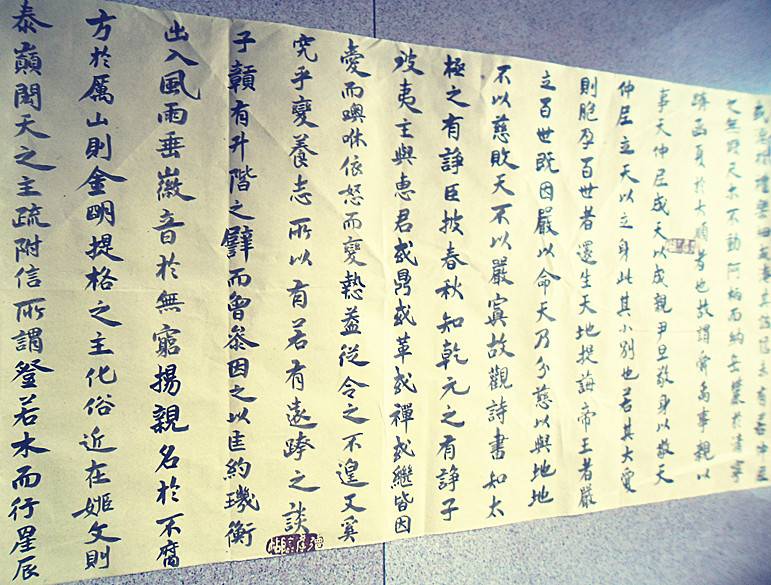 有若仲尼
之無跡尺木不動阿而納於清寧
躋函夏於大順者也故謂舜禹事親以
事天仲尼成天以成親尹旦敬身以敬天
仲尼立天以立身此其小別也若其大愛
則胞孕百世者還生天地提誨帝王者嚴
立百世既因嚴以命天乃分慈以與地地
不以慈敗天不以嚴寡故觀詩書知太
極之有諍臣披春秋知乾元之有諍子
故夷主與惠君或鼎或革或禪或繼皆因
愛而噢咻依怒而變熱蓋從令之不遑又奚
究乎變養志所以有若有遠跡之談
子贛有升階之譬而曾參因之以匡約璣衡
出入風雨垂徽音於無窮揚親名於不腐
方於厲山則金明提格之主化俗近在姬文則
泰巔閎天之主疏附信所謂登若水而行星辰